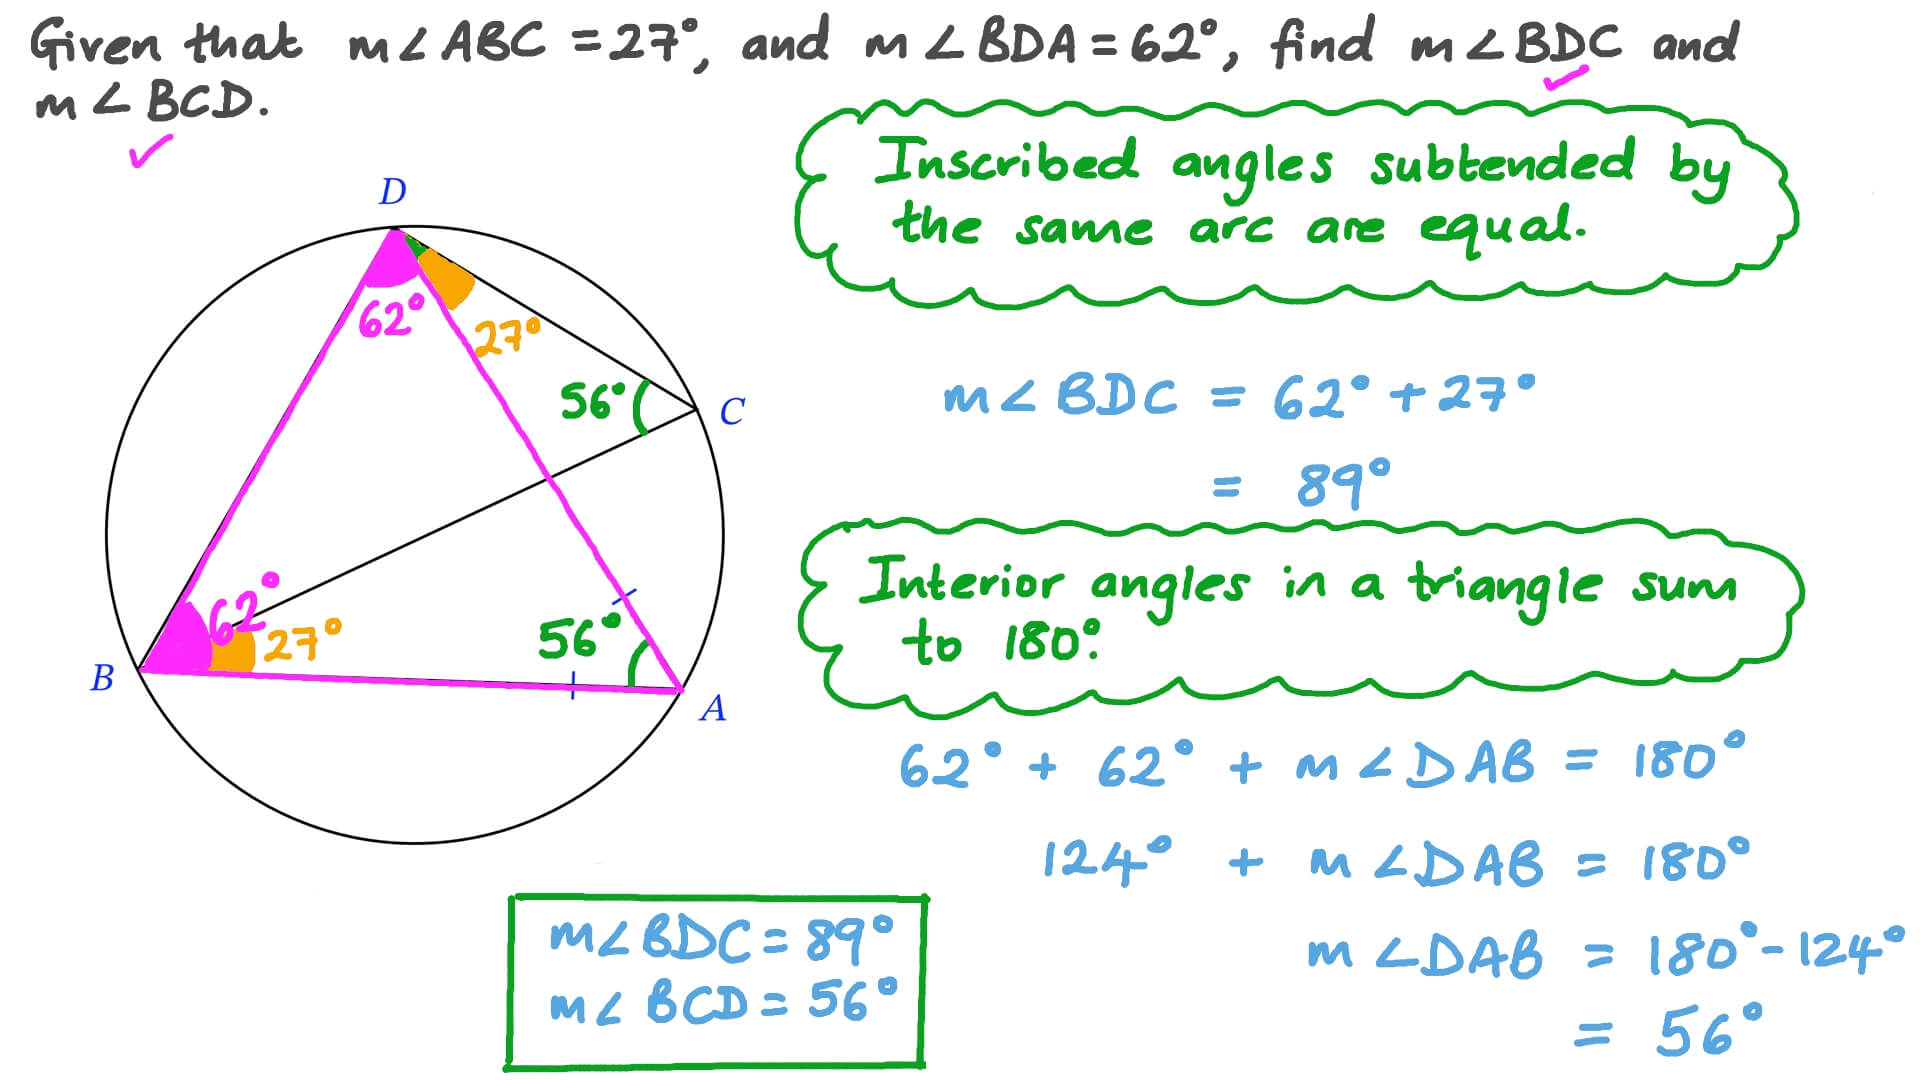 Given that m∠ABC = 27°, and m∠BDA = 62°, find m∠BDC and
m∠BCD.
Inscribed angles subtended by
the same arc are equal.
D
62°
27°
56°
C
m∠BDC = 62° + 27°
= 89°
Interior angles in a triangle sum
to 180°.
62°
27°
56°
B
A
62° + 62° + m∠DAB = 180°
124° + m∠DAB = 180°
m∠DAB = 180° - 124°
= 56°
m∠BDC = 89°
m∠BCD = 56°